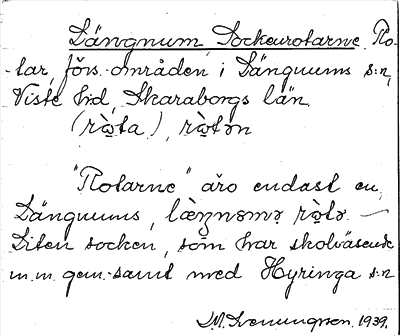 Längnum, Sockenrotarne. Ro-
tar, förs.-områden i Längnums s:n,
Viste hd, Skaraborgs län
(rò̤ta), rò̤tən
"Rotarne" äro endast en
Längnums, læ̀ŋnɵmə rò̤tə. —
Liten socken, som har skolväsende
m.m. gem-samt med Hyringa s:n
1939.